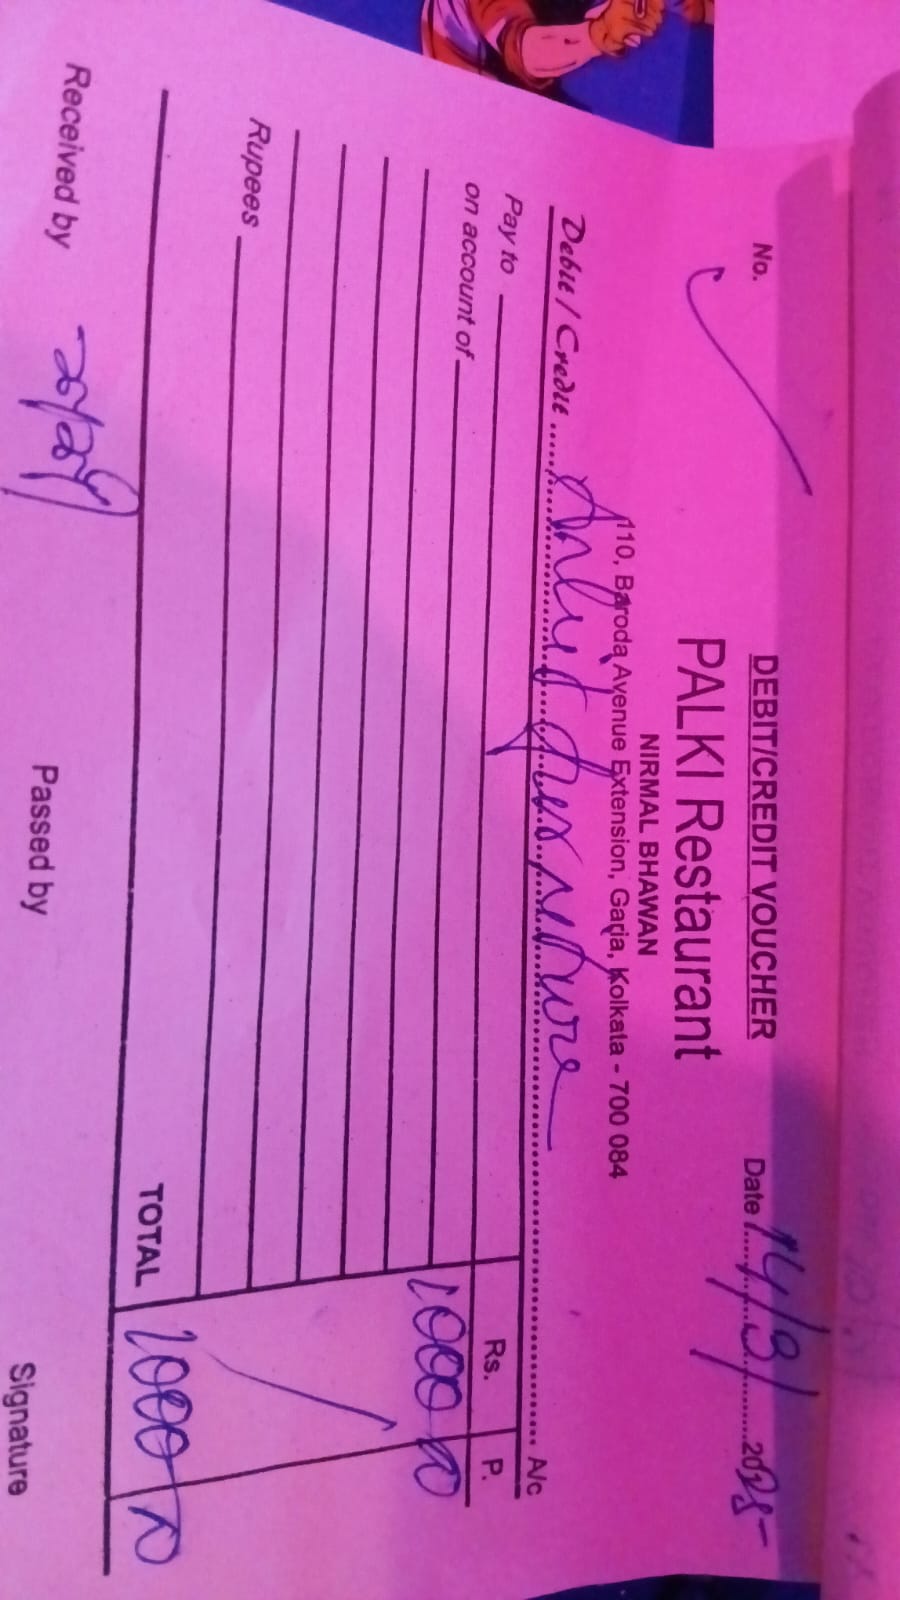 DEBIT/CREDIT VOUCHER
No. Date 14/3/2025
PALKI Restaurant
NIRMAL BHAWAN
110, Baroda Avenue Extension, Garia, Kolkata - 700 084
Debit / Credit ..... A/c
Pay to Rs. P.
on account of 1000
Rupees
TOTAL 1000
Received by Passed by Signature